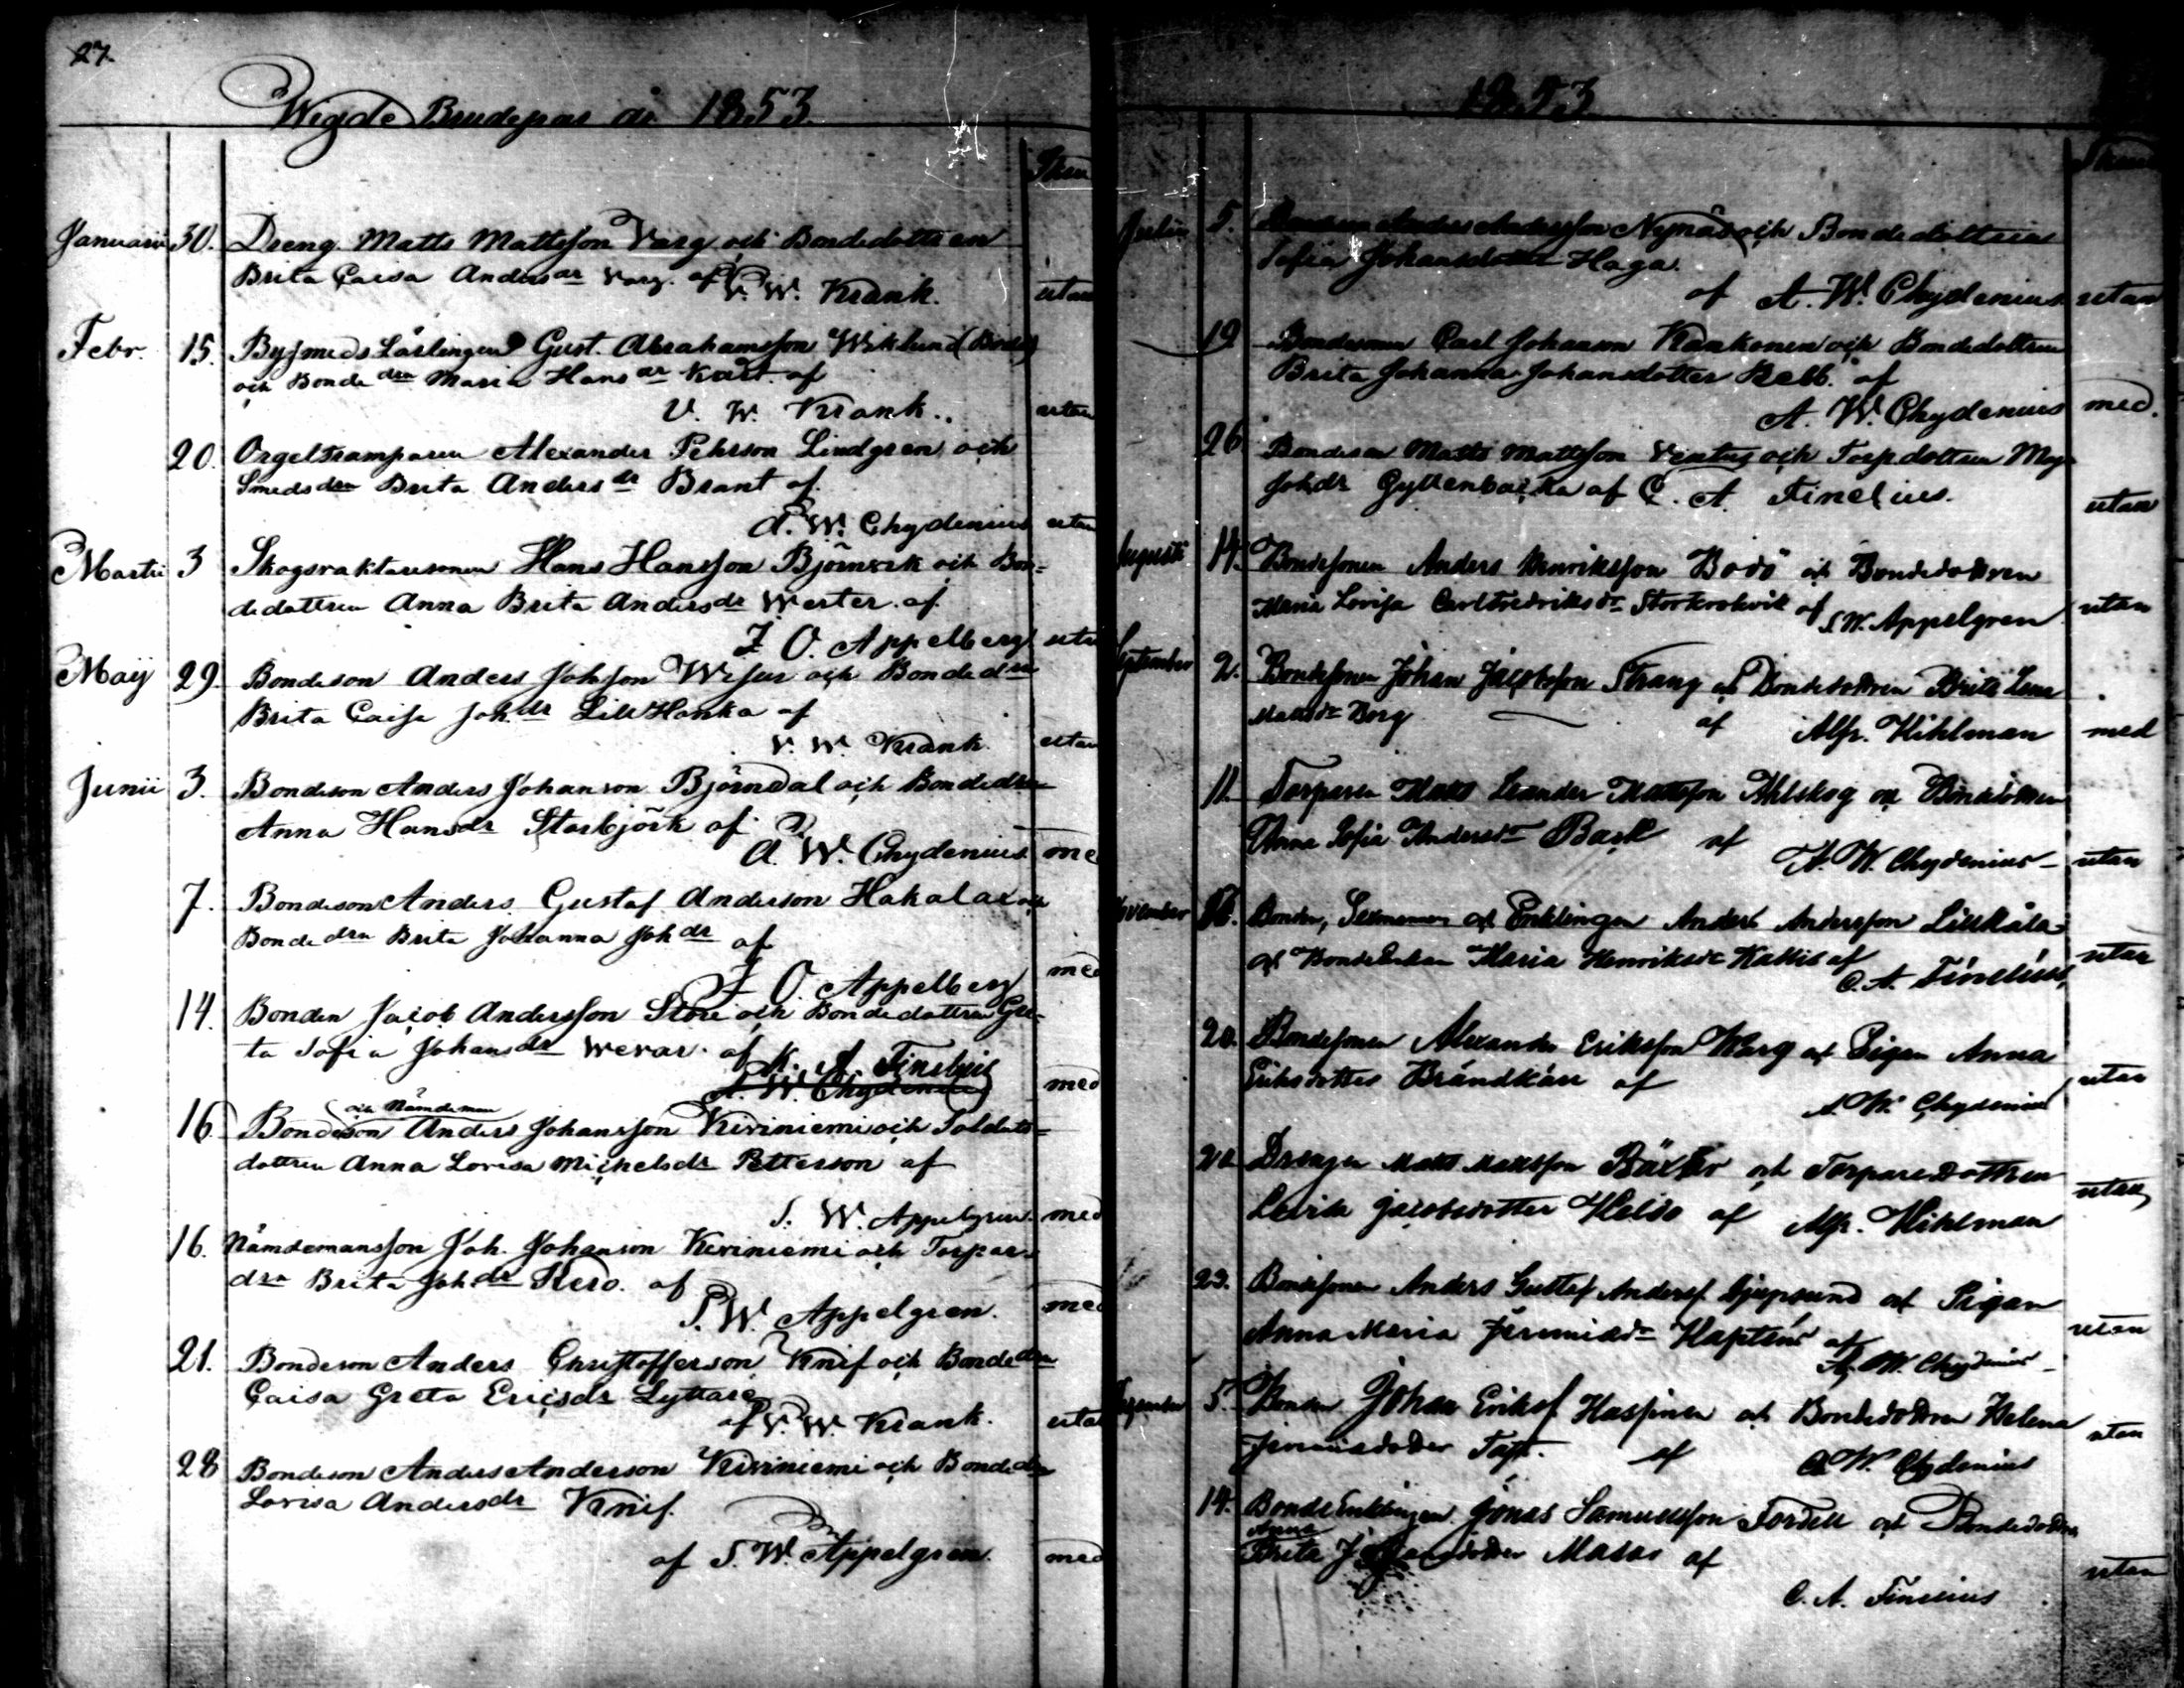 27.
Wigde Brudepar år 1853
Januarii 30. Dreng Matts Mattsson Varg och Bondedottren
Brita Caisa Anders dr Varg. af V. W. Krank. utan
Febr. 15. Bysmeds Lärlingen Gust. Abrahamsson Wiklund
och Bonde drn Maria Hans dr Kart. af
V. W. Krank. utan
20. Orgeltramparen Alexander Pehrson Lindgren och
Smeds drn Brita Anders dr Brant af
A. W. Chydenius utan
Martii 3 Skogsvaktaresonen Hans Hansson Björnvik och Bon=
dedottren Anna Brita Anders dr Werter. af
F. O. Appelberg utan
Maij 29. Bondeson Anders Johsson Wisur och Bonde drn
Brita Caisa Joh. dr Lill Honka af
V. W. Krank. utan
Junii 3. Bondeson Anders Johanson Björndal och Bondedrn
Anna Hansdr Storbjörk af
A. W. Chydenius med
7. Bondeson Anders Gustaf Anderson Hakalax och
Bonde drn Brita Johanna Joh dr af
F. O. Appelberg med
14. Bonden Jacob Andersson Store och Bondedottren Gre-
ta Sofia Johans dr Wevar. af K. A. Finelius
A. W. Chydenius med
och Nämdeman
16. Bondeson Anders Johansson Kiviniemi och Soldats-
dottren Anna Lovisa Michelsdr Petterson af
S. W. Appelgren. med
16. Nämdemansson Joh. Johanson Kiviniemi och Torpar-
drn Brita Joh dr Kero. af
S. W. Appelgren. med
21. Bondeson Anders Christofferson Knif och Bonde drn
Caisa Greta Ericsdr Lyttare
af V. W. Krank. utan
28 Bondeson Anders Anderson Kiviniemi och Bonde drn
Lovisa Andersdr Knif.
af S. W. Appelgren. med
1853
Julii 5. Anders Andersson Nynäs och Bondedottren
Sofia Johansdotter Haga.
af A. W. Chydenius utan
19 Bondesonen Carl Johanson Kankonen och Bondedottren
Brita Johanna Johansdotter Rebb. af
A. W. Chydenius med.
26 Bondeson Matts Mattsson och Torpdottren Maj
Johdr Gyllenbacka af C. A. Finelius. utan
Augusti 14. Bondesonen Anders Henriksson Bodö och Bondedottren
Maria Lovisa Carlfredriks dr Storkrokvik af S. W. Appelgren utan
September 2. Bondesonen Johan Jacobsson Strang och Bondedottren Brita Lena
Matts dr Borg af Alfr. Hihlman med
11. Torparen Matts Leander Mattsson Ahlskog och
Anna Sofia Anders dr Bask af
A. W. Chydenius utan
November Bonden, och Enklingen Anders Andersson Lillkåla
och Bondeenkan Maria Henriks dr Kattis af
C. A. Finelius, utan
20. Bondesonen Alexander Eriksson Warg och Pigan Anna
Eriksdotter Brändkärr af
A. W. Chydenius utan
20 Drengen Matts Mattsson Bäxbo och Torparedottren
Lovisa Jacobsdotter Helso af Alfr. Hihlman utan
23. Bondesonen Anders Gustaf Anders. Djupsund och Pigan
Anna Maria Jeremias dr af
A. W. Chydenius utan
December 5. Bonden Johan Eriks. Hassinen och Bondedottren Helena
Jeremiasdotter af A. W. Chydenius utan
14. BondeEnklingen Jonas Samuelsson Fordell och Bondedottren
Anna
Brita Masar af
C. A. Finelius utan